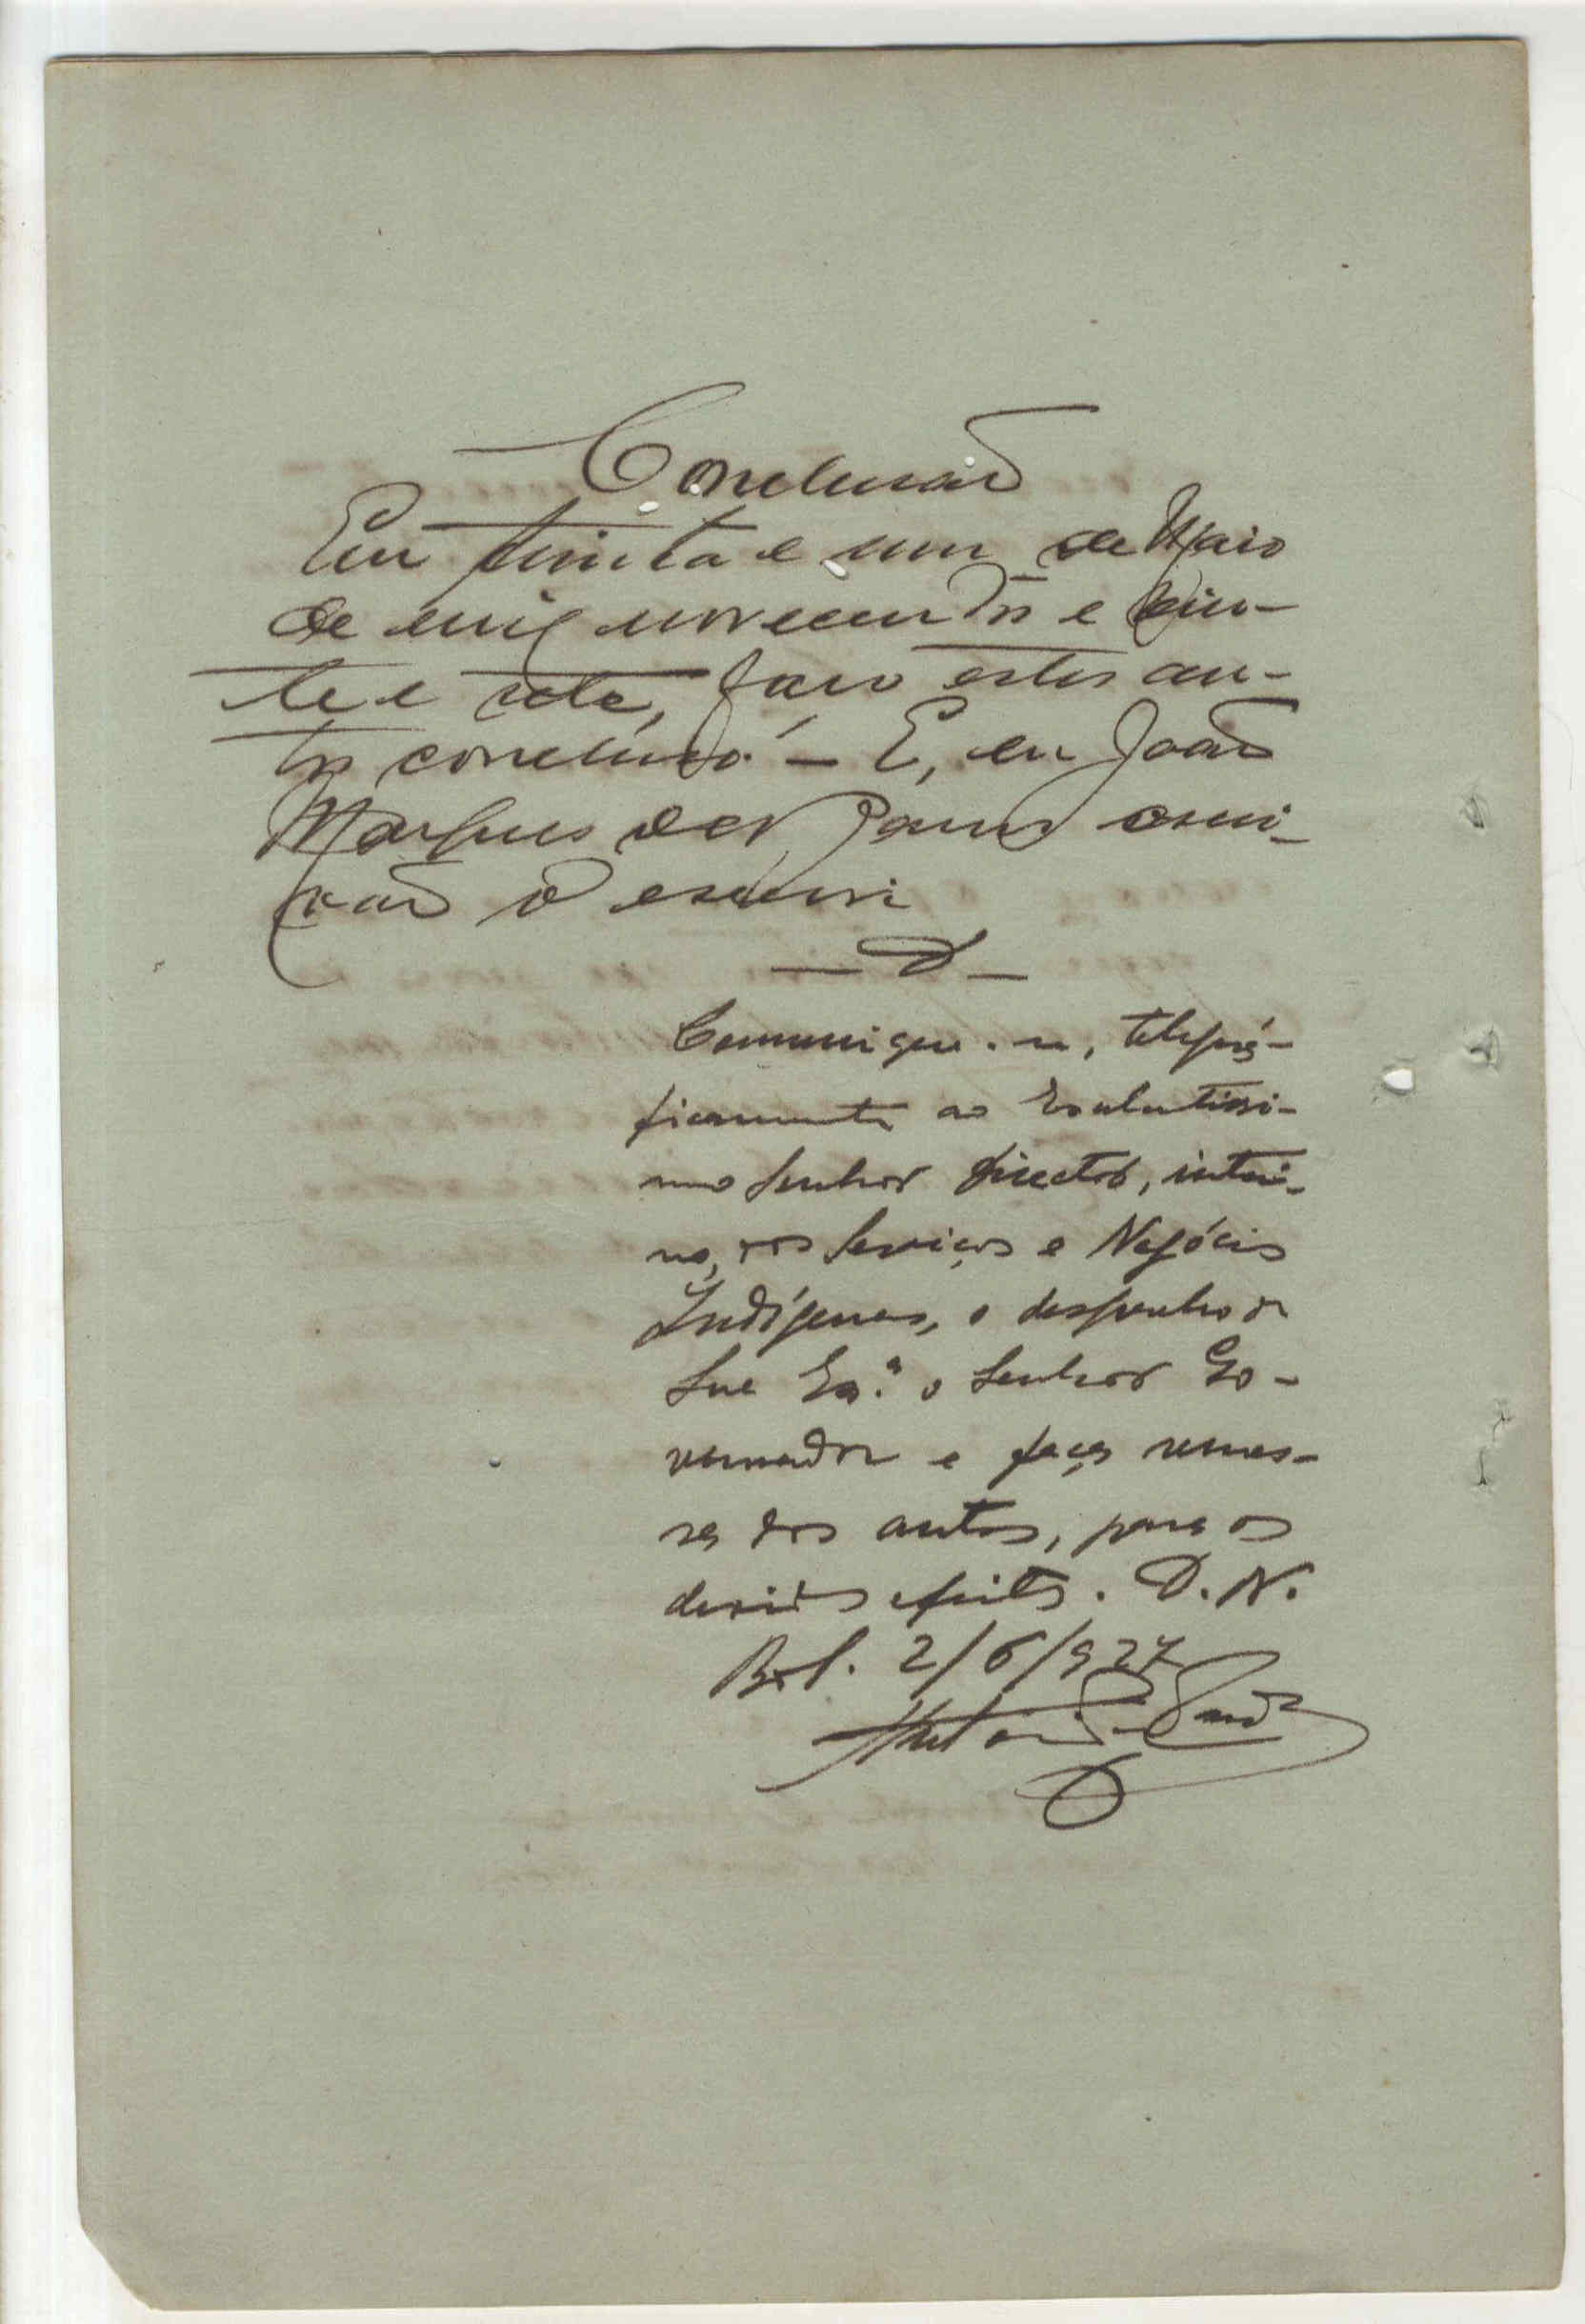 Conclusão
Em trinta e um de Maio
de mil novecentos e vin-
te e sete, faço estes au-
tos conclusos. — E, eu João
Marques de Barros escri-
vão o escrevi
— D —
Communique-se, telegrá-
ficamente ao Excelentissi-
mo Senhor Director, interi-
no, dos Serviços e Negócios
Indígenas, o despacho de
Sua Exª o Senhor Go-
vernador e faça remes-
sa dos autos, para os
devidos efeitos. D. N.
2/6/927
António